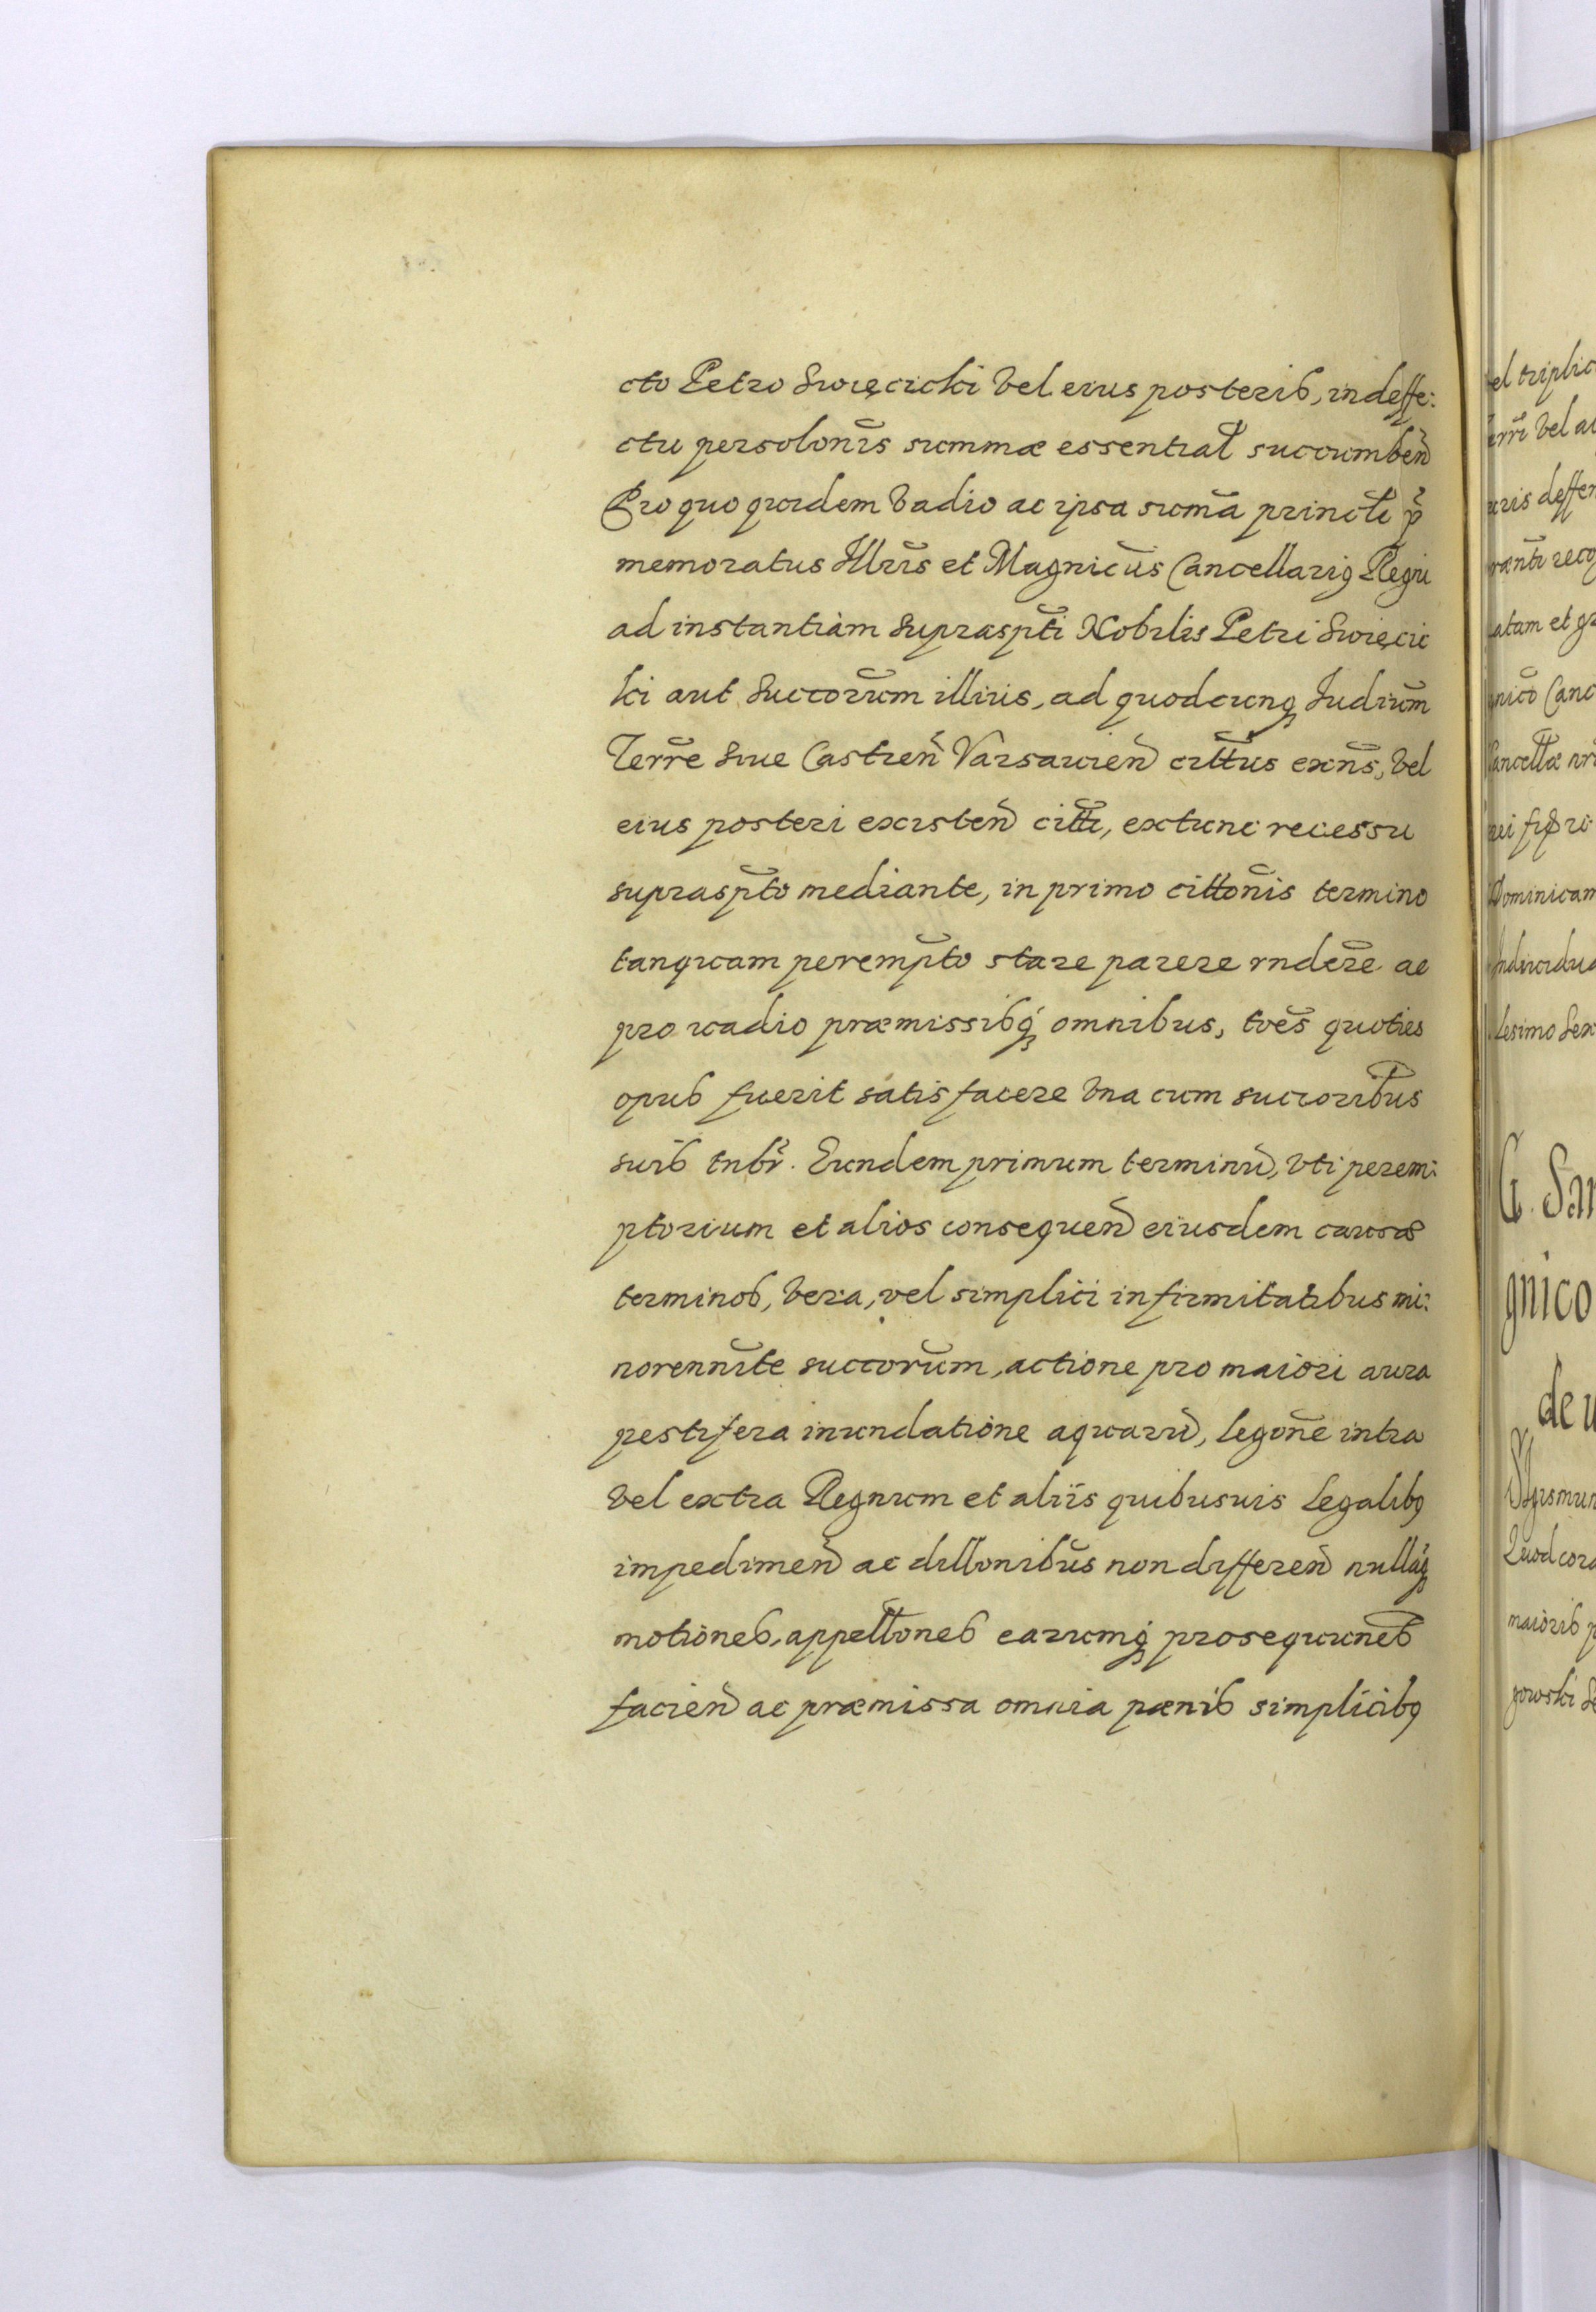 cto Petro Swięcicki vel eius posteris, in deffe:
ctu persolonis summæ essential succumben
Pro quo quidem vadio ac ipsa suma princili p
memoratus Illris et Magnicus Cancellarius Regni
ad instantiam supraspti Nobilis Petri Swięcic
ki aut succorum illius, ad quodcunq Iudicium
Terre siue Castren Varsauien cittus exns, vel
eius posteri existen citti, extunc recessu
supraspto mediante, in primo cittonis termino
tanquam perempto stare parere rndere ac
pro vadio præmissisq omnibus, toes quoties
opus fuerit satisfacere vna cum succoribus
suis tnbr. Eundem primum terminu, vti perem:
ptorium et alios consequen eiusdem causæ
terminos, vera, vel simplici infirmitatibus mi:
norennite succorum, actione pro maiori aura
pestifera inundatione aquaru, legone intra
vel extra Regnum et aliis quibusuis legalibq
impedimen ac dillonibus non differen nullasq
motiones, appellones earumq prosequunes
facien ac præmissa omnia pænis simplicibq
el triplic
erri vel
uris deffen
ranti reco
latam et gr
gnico Canc
Cancellæ nri
rei
Dominicam
Indiuidua
lesimo Sex
G. San
gnico
de
Sigismun
Quod cora
maioris p
gowski Se